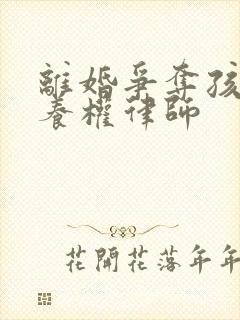 離婚爭奪孩
養權律師
花開花落年年